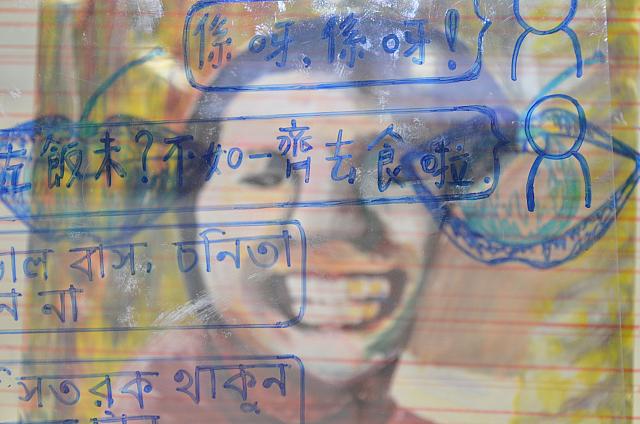 係呀,係呀!
左飯未?不如一齊去食啦.
াল বাস, চনিতা
ন না
সতরুক থাকুন